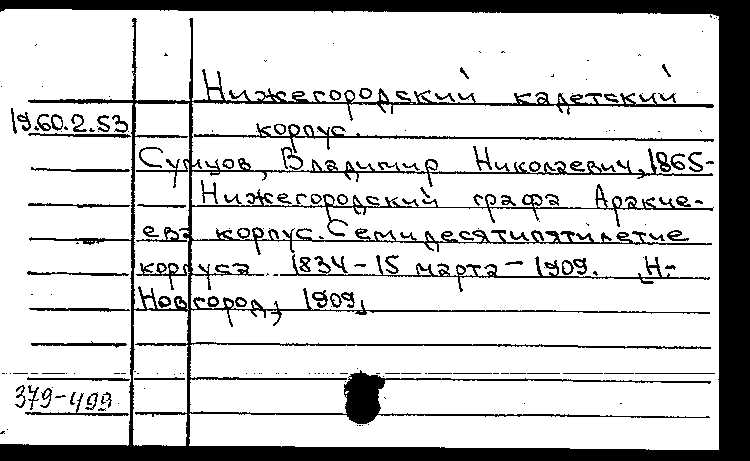 Нижегородский кадетский
19.60.2.S3 корпус.
Сумцов, Владимир Николаевич, 1865-
Нижегородский графа Аракче-
ева корпус. Семидесятипятилетие
корпуса 1834-15 марта-1909. [Н.-
Новгород, 1909]
379-499